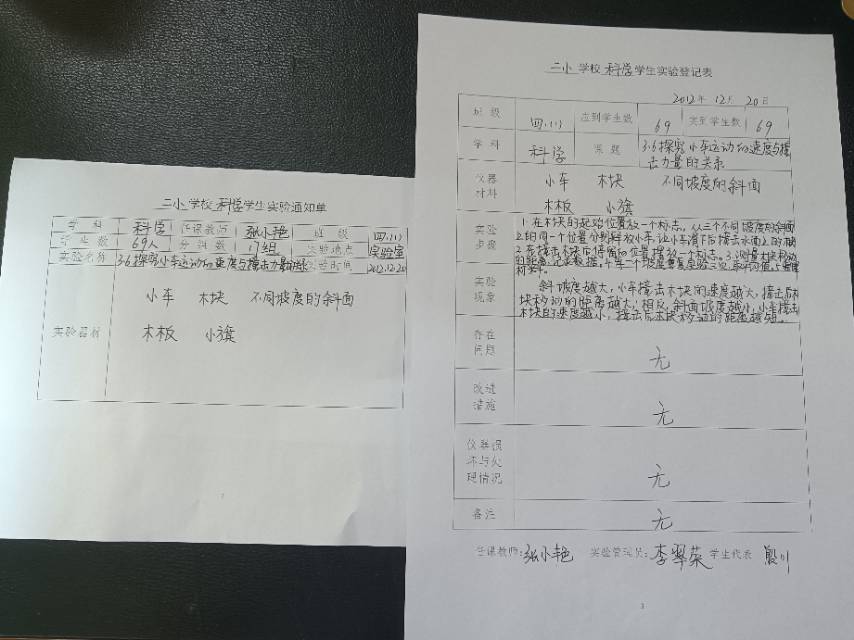 二小学校科学学生实验通知单
学科 科学 任课教师 张小艳 班级 四.(1)
学生数 69人 分组数 17组 实验地点 实验室
实验名称 3.6探究小车运动的速度与撞击力量的关系 实验时间 2012.12.20
实验器材
小车 木块 不同坡度的斜面
木板 小旗
二小学校科学学生实验登记表
2012年12月20日
班级 四.(1) 应到学生数 69 实到学生数 69
学科 科学 课题 3.6探究小车运动的速度与撞
击力量的关系
仪器
材料
小车 木块 不同坡度的斜面
木板 小旗
实验
步骤
1.在木块的起始位置放一个标志。从三个不同坡度的斜面
上的同一个位置分别释放小车,让小车滑下后撞击水面上的木块
2.在撞击木块后停留的位置摆放一个标志。3.测量木块移动
的距离,记录数据。4.每一个坡度重复实验三次,取平均值。5.整理
材料。
实验
现象
斜坡度越大,小车撞击木块的速度越大,撞击后木
块移动的距离越大;相反,斜面坡度越小,小车撞击
木块的速度越小,撞击后木块移动的距离越短。
存在
问题
无
改进
措施
无
仪器损
坏与处
理情况
无
备注
无
任课教师:张小艳 实验管理员:李翠荣 学生代表